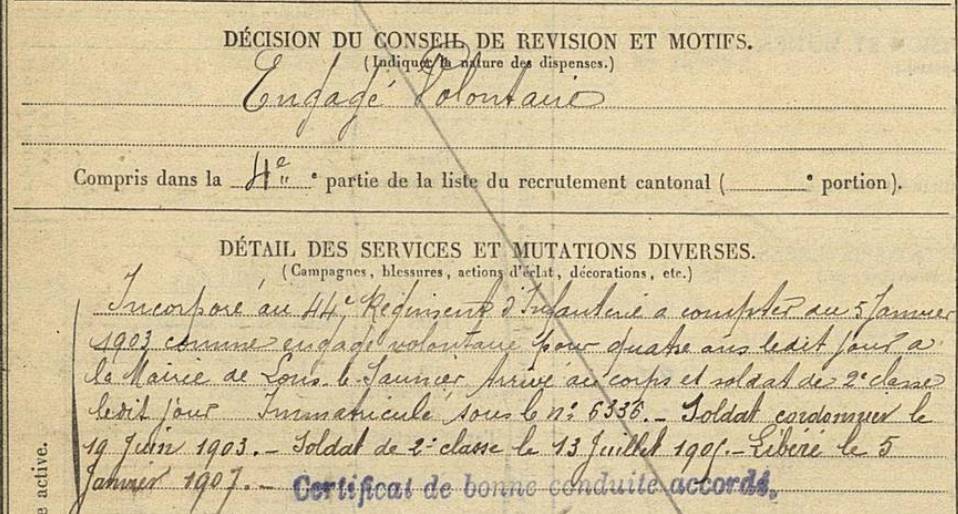 DÉCISION DU CONSEIL DE REVISION ET MOTIFS.
(Indiquer la nature des dispenses.)
Engagé Volontaire
Compris dans la 4e " e partie de la liste du recrutement cantonal ( e portion).
DÉTAIL DES SERVICES ET MUTATIONS DIVERSES.
(Campagnes, blessures, actions d'éclat, décorations, etc.)
Incorporé au 44e Régiment d'Infanterie a compter du 5 Janvier
1903 comme engagé volontaire pour quatre ans ledit jour a
la Mairie de Lons-le-Saunier, Arrivé au corps et soldat de 2e classe
ledit jour Immatriculé sous le no 6336. - Soldat cordonnier le
19 Juin 1903. - Soldat de 2e classe le 13 Juillet - Libéré le 5
Janvier 1907. - Certificat de bonne conduite accordé.
e active.